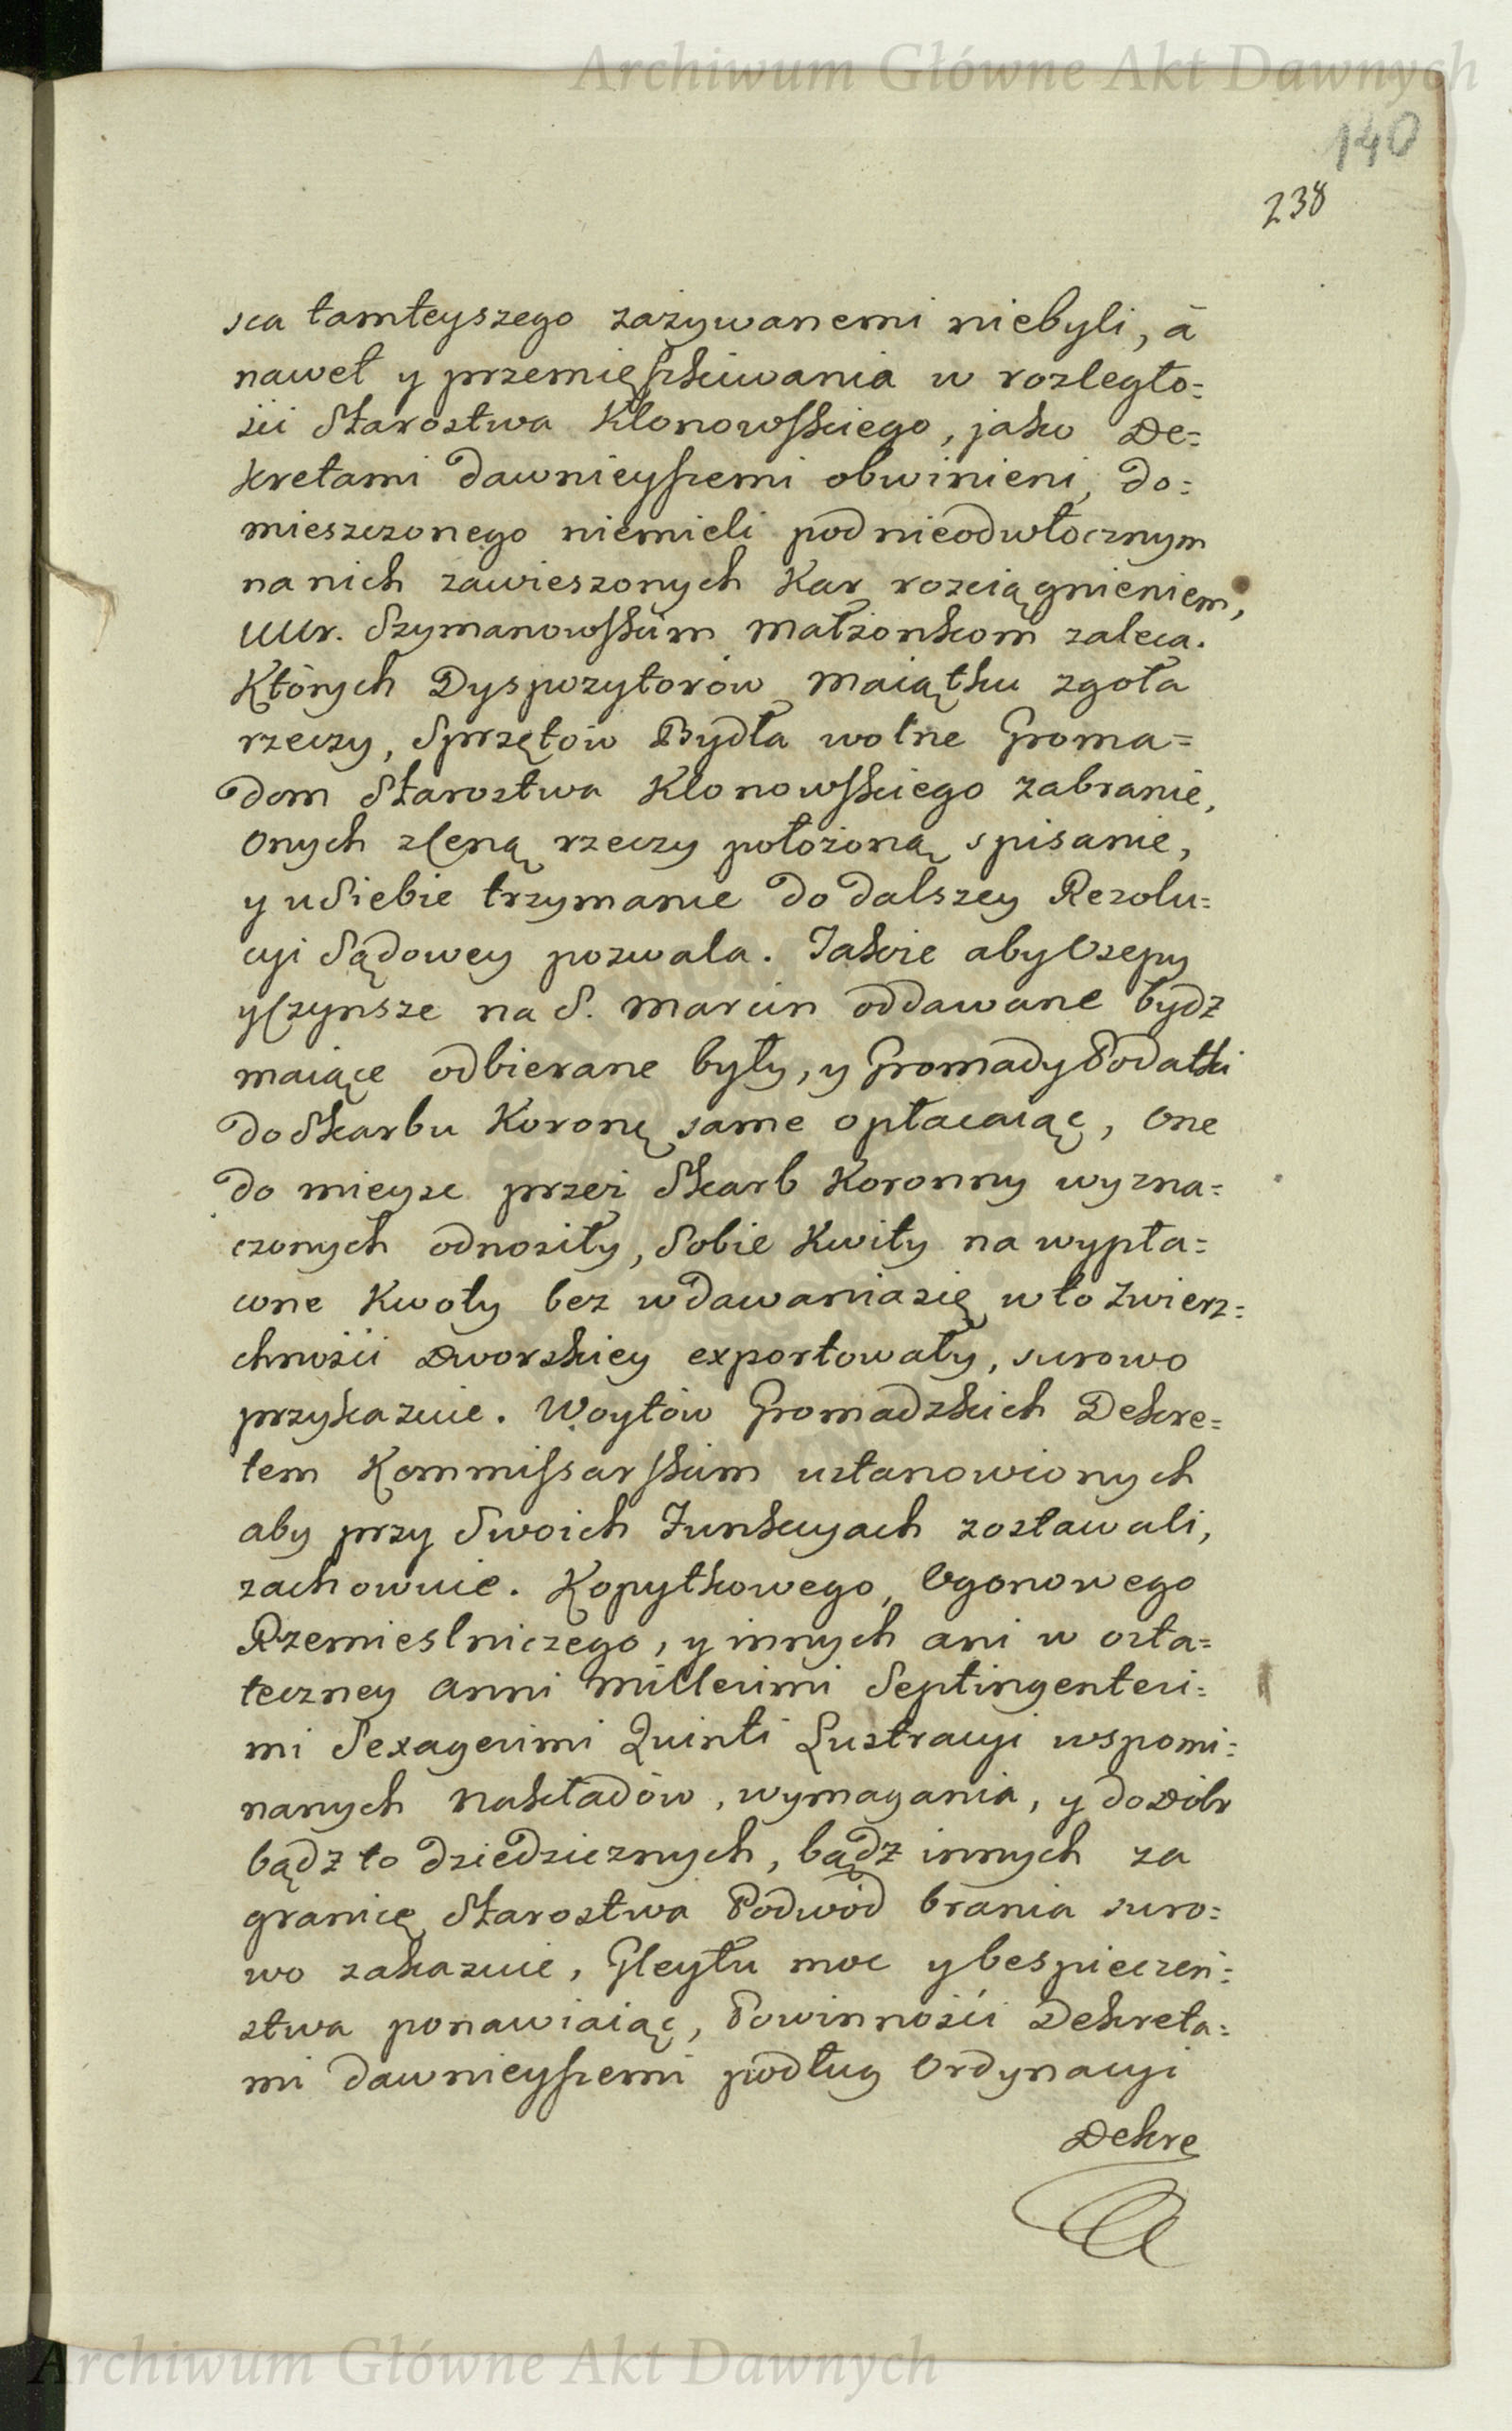 Archiwum Główne Akt Dawnych
140
238
sca tamteyszego zażywanemi niebyli, a
nawet y przemięszkiwania w rozległo=
ści Starostwa Klonowskiego, jako De=
kretami dawnieyszemi obwinieni, do=
mieszczonego niemieli pod nieodwłocznym
na nich zawieszonych Kar rozciągnieniem,
UUr. Szymanowskim Małżonkom zaleca.
Których Dyspozytorów Maiątku zgoła
rzeczy, Sprzętów Bydła wolne Groma=
dom Starostwa Klonowskiego zabranie,
Onych z Ceną rzeczy położoną spisanie,
y u Siebie trzymanie do dalszey Rezolu=
cyi Sądowey pozwala. Jakie aby Osepy
y Czynsze na S. Marcin oddawane bydz
maiące odbierane były, y Gromady Podatki
do Skarbu Koronę same opłacaiąc, One
do mieysc przez Skarb Koronny wyzna=
czonych odnosiły, Sobie Kwity na wypła=
cone Kwoty bez wdawania się w to Zwierz=
chności Dworskiey exportowały, surowo
przykazuie. Woytów Gromadzkich Dekre=
tem Kommissarskim ustanowionych
aby przy Swoich Funkcyach zostawali,
zachowuie. Kopytkowego, Ogonowego
Rzemieslniczego, y innych ani w osta=
teczney Anni Millesimi Septingentesi=
mi Sexagesimi Quinti Lustracyi wspomi=
nanych Nakładów, wymagania, y do Dóbr
bądz to dziedzicznych, bądz innych za
granicę Starostwa Podwód brania suro=
wo zakazuie, Gleytu moc y bespieczeń=
stwa ponawiaiąc, Powinności Dekreta=
mi dawnieyszemi podług Ordynacyi
Dekre
Archiwum Główne Akt Dawnych